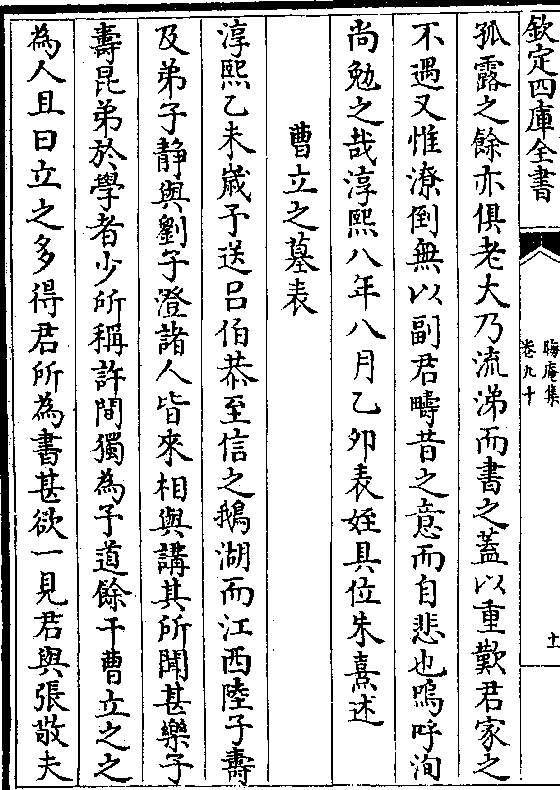 欽定四庫全書
晦庵集
卷九十
十一
孤露之餘亦俱老大乃流涕而書之蓋以重歎君家之
不遇又惟潦倒無以副君疇昔之意而自悲也嗚呼洵
尚勉之哉淳熙八年八月乙卯表姪具位朱熹述
曹立之墓表
淳熙乙未歲予送呂伯恭至信之鵝湖而江西陸子壽
及弟子靜與劉子澄諸人皆來相與講其所聞甚樂子
壽昆弟於學者少所稱許間獨為予道餘干曹立之之
為人且曰立之多得君所為書甚欲一見君與張敬夫